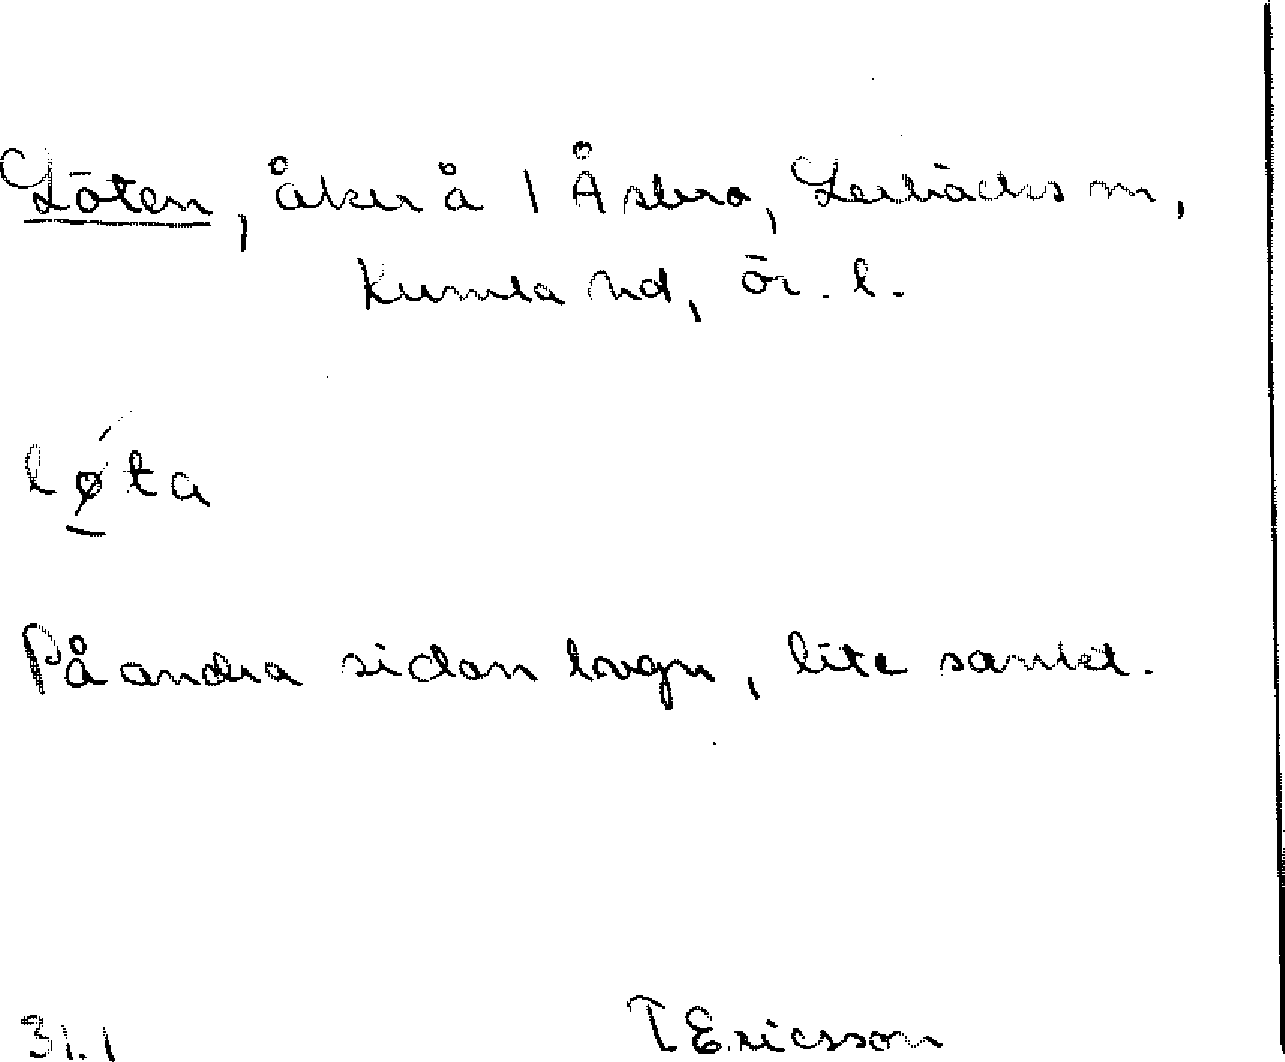 Löten, åker å 1 Åsbro, Lerbäcks sn,
Kumla hd, Ör. l.
løta
På andra sidan vägen, lite samlat.
31.1 T Ericsson